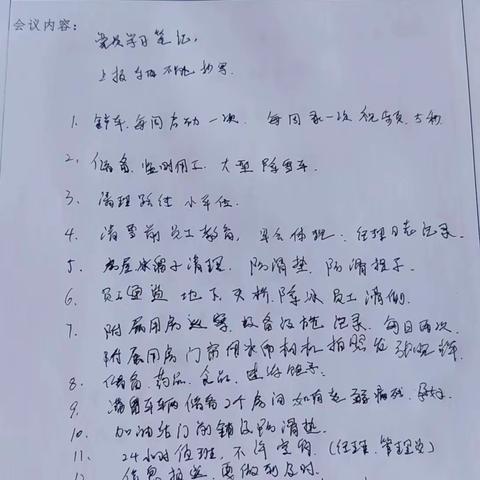 会议内容:
党员学习笔记,
上报 不 抄写.
1. 铲车,每周启动一次. 每周录一次视频,
2. 储备,监时用工,大型除雪车.
3. 清理路径 小单位.
4. 清雪前员工教育, 早会体现:经理日志记录.
5. 房屋冰溜子清理, 防滑垫,防滑提示.
6. 员工通道 地下,天桥,除冰员工清倒.
7. 附属用房巡察,设备设施记录,每日两次.
附属用房门窗用水印相机拍照发
8. 储备,药品,食品,
9. 清雪车辆 储备2个房间如有
10. 加油站门前铺设防滑垫.
11. 24小时值班,不得空岗.(经理、管理员)
12. 信息报送,要做到及时.